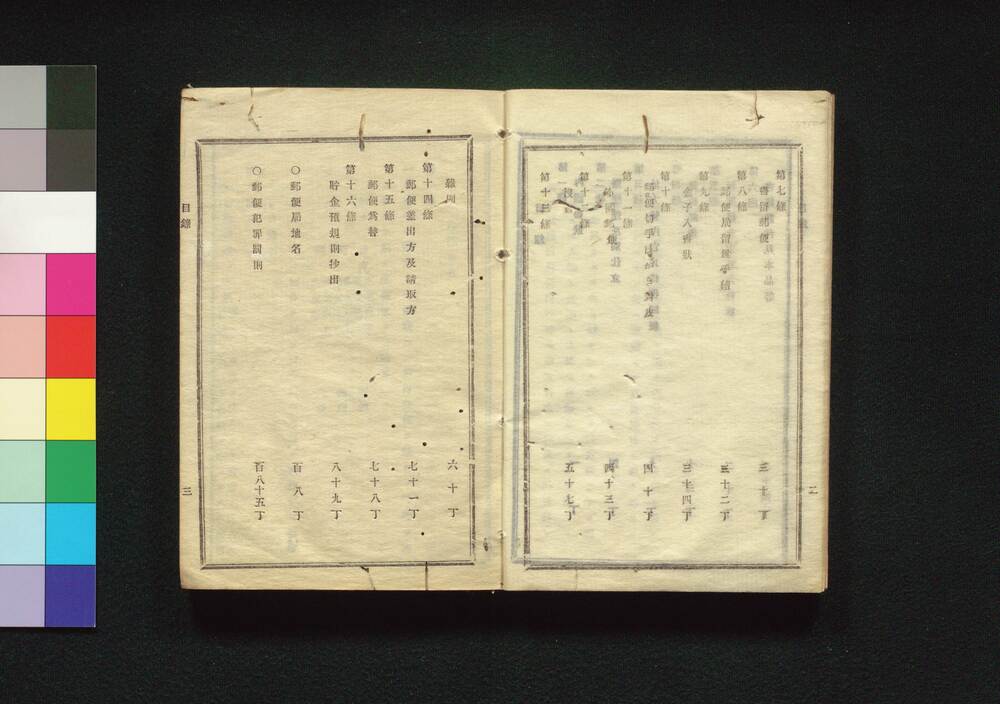 第七條
書留郵便
三十丁
第八條
郵便局留置手續
三十二丁
第九條
金子入書狀
三十四丁
第十條
四十丁
四十三丁
五十七丁
第十三條
二
六十丁
第十四條
郵便差出方及請取方
七十一丁
第十五條
郵便爲替
七十八丁
第十六條
貯金預規則抄出
八十九丁
〇郵便局地名
百八丁
〇郵便犯罪罰則
百八十五丁
目錄
三